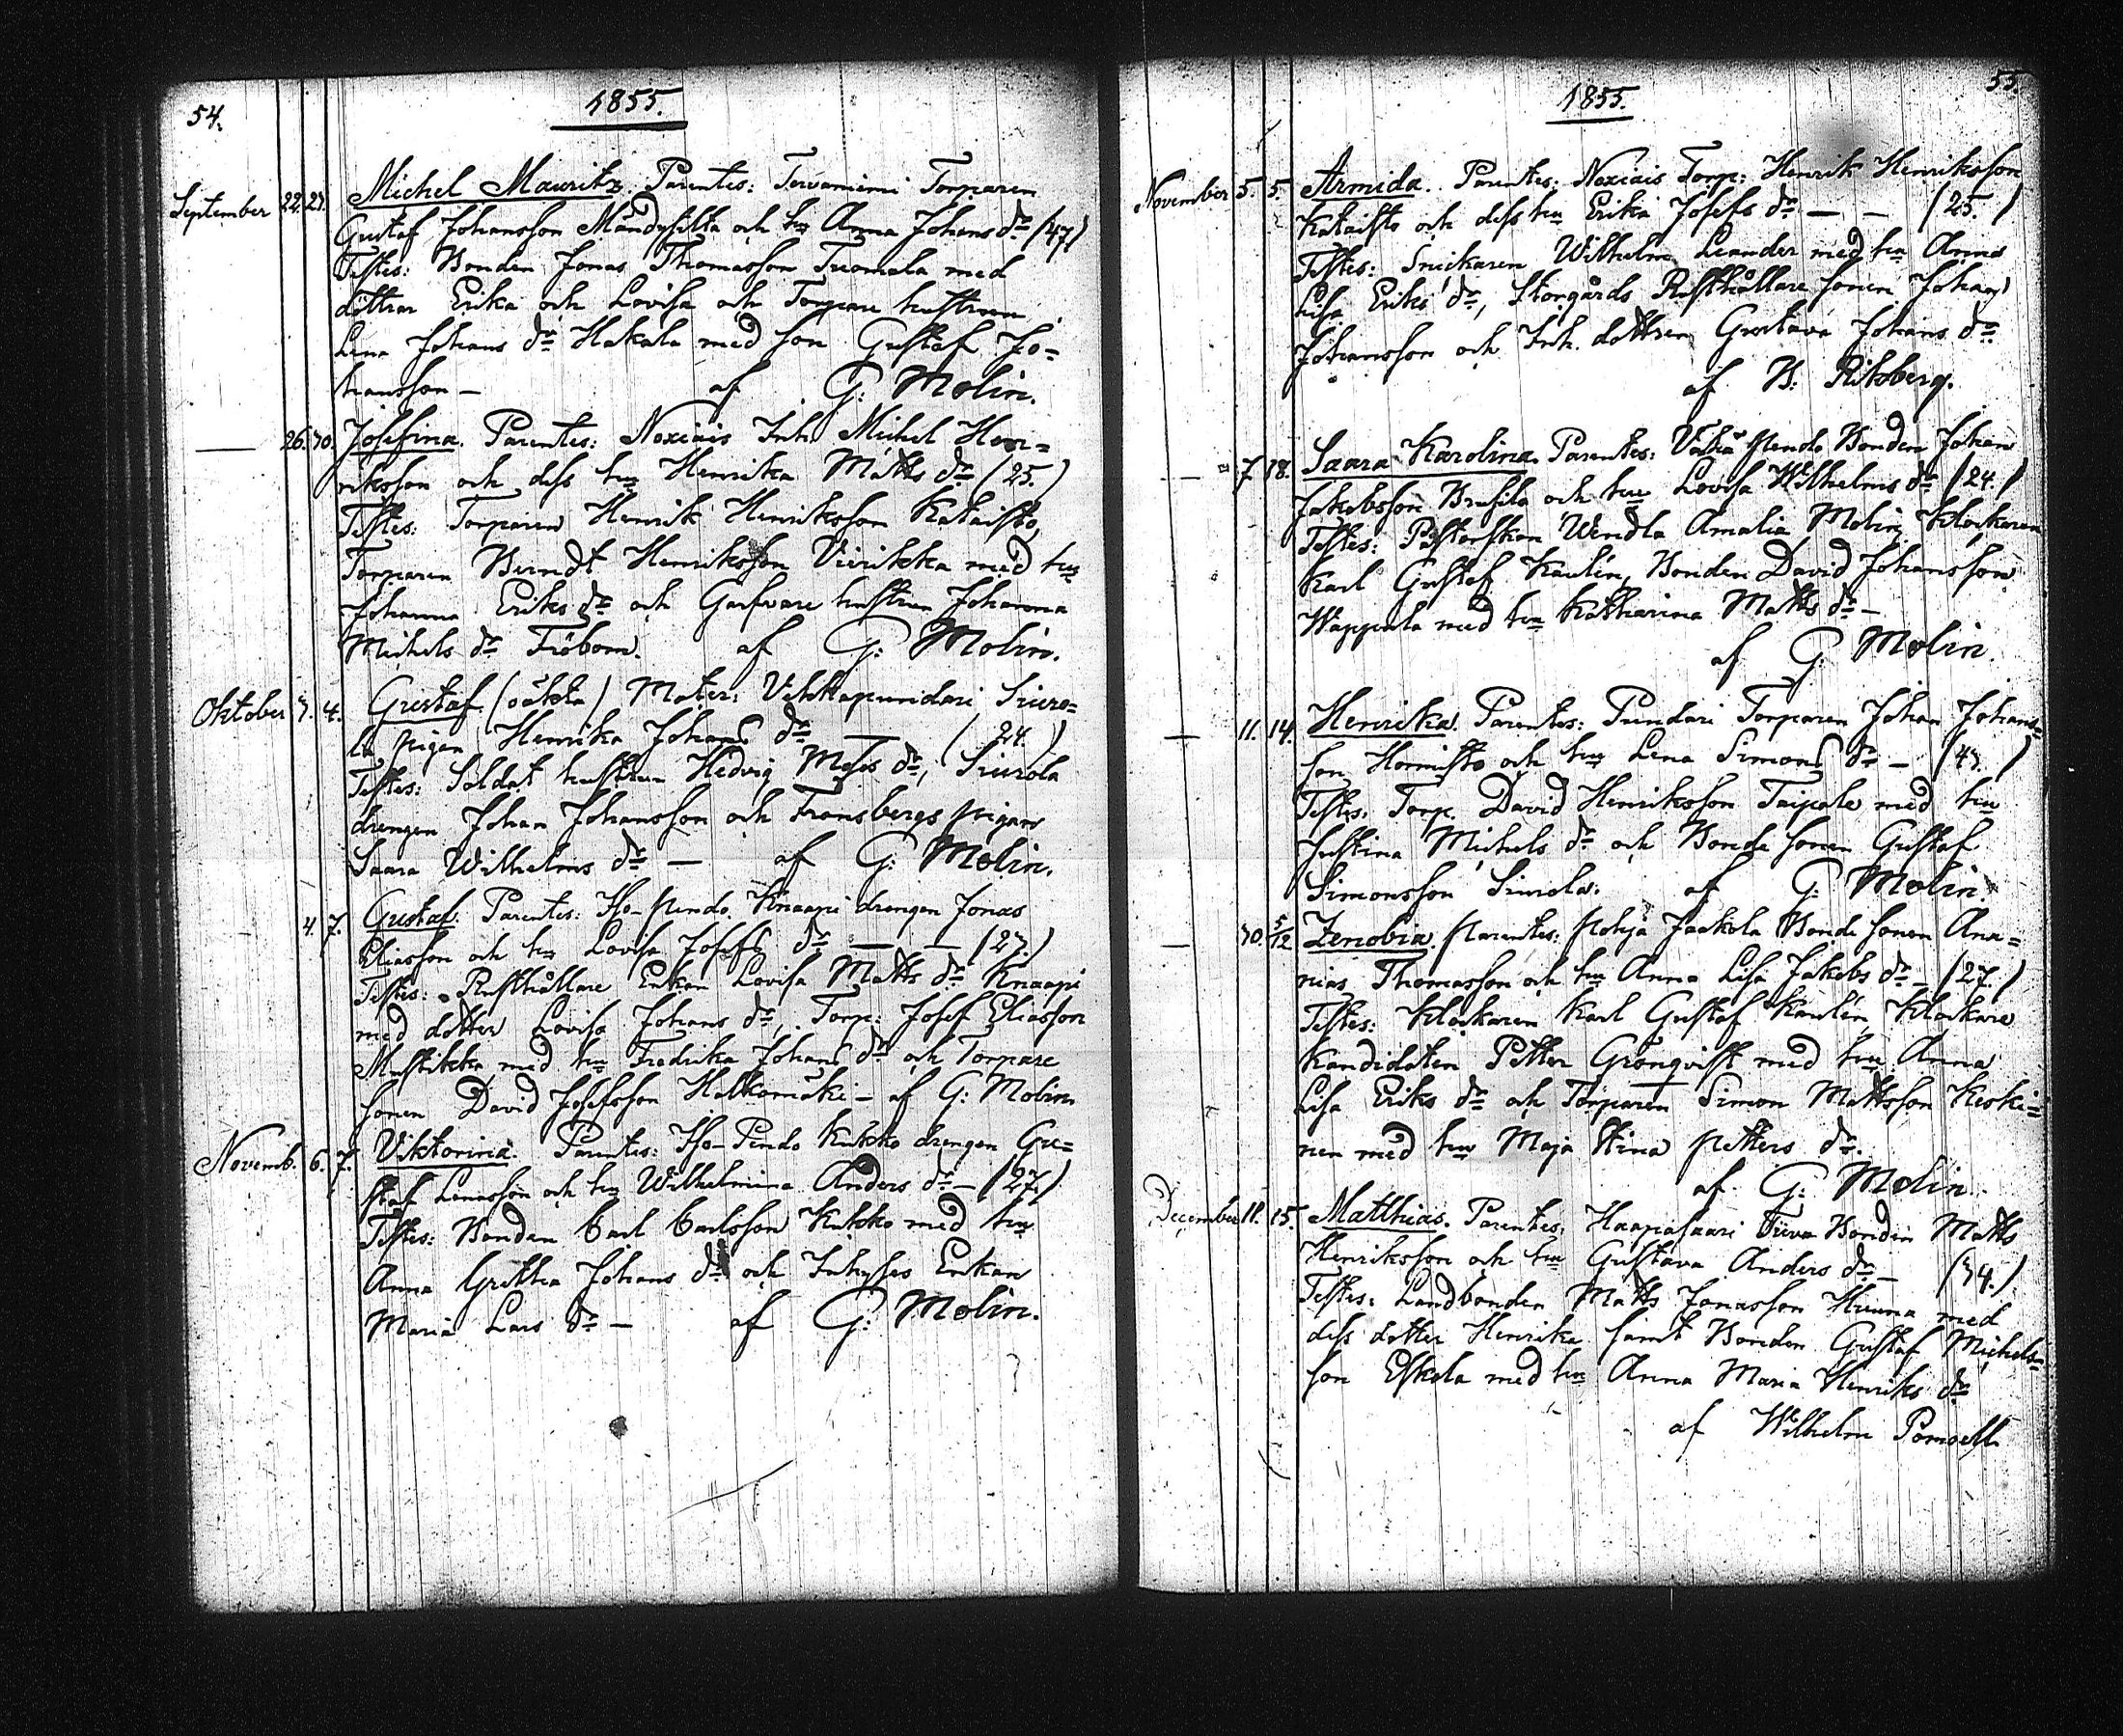 54.
1855.
September 22. 23. Michel Mauritz. Parentes: Tervaniemi Torparen
Gustaf Johansson Mändysilta och hu Anna Johans dr (47)
Testes: Bonden Jonas Thomasson Tuomala med
döttrar Erika och Lovisa och Torpare hustrun
Lena Johans dr Hakala med son Gustaf Jo=
hansson — af G: Molin.
— 26. 30. Josefina. Parentes: Noxiais Inh. Michel Hen=
riksson och dess hu Henrika Matts dr (25.)
Testes: Torparen Henrik Henriksson Kataisto,
Torparen Berndt Henriksson Viirikka med hu
Johanna Eriks dr och Garfvare hustrun Johanna
Michels dr Fröbom. af G: Molin.
Oktober 3. 4. Gustaf (oäkta) Mater: Vekkapundari Siuro=
la pigan Henrika Johans dr — (24.)
Testes: Soldat hustrun Hedvig Moses dr, Siurola
drengen Johan Johansson och Fransbergs pigan
Saara Wilhelms dr — af G: Molin.
4. 7. Gustaf. Parentes: Iso-pendo Knaapi drengen Jonas
Eliasson och hu Lovisa Josefs dr — — (23.)
Testes: Rusthållare Enkan Lovisa Matts dr Knaapi
med dotter Lovisa Johans dr, Torp: Josef Eliasson
Mustikka med hu Fredrika Johans dr och Torpare
sonen David Josefsson Halkomäki — af G: Molin
Novemb. 6. 7. Viktorina. Parentes: Iso-Pendo Kukko drengen Gu=
staf Lenasson och hu Wilhelmina Anders dr — (27.)
Testes: Bonden Carl Carlsson Kukko med hu
Anna Gretha Johans dr och Inhyses Enkan
Maria Lars dr — af G: Molin.
55.
1855.
November 5. 5. Armida. Parentes: Noxiais Torp: Henrik Henriksson
Kataisto och dess hu Erika Josefs dr — — (25.)
Testes: Snickaren Wilhelm Leander med hu Anna
Lisa Eriks dr, Storgårds Rusthållare sonen Johan
Johansson och Inh. dottren Gustava Johans dr
af B: Ritzberg.
— 7. 18. Saara Karolina. Parentes: Vähä pendo Bonden Johan
Jakobsson Brusila och hu Lovisa Wilhelms dr (24.)
Testes: Pastorskan Wendla Amalia Molin, Klockaren
Karl Gustaf Kaulén, Bonden David Johansson
Wappula med hu Katharina Matts dr —
af G: Molin.
— 11. 14. Henrika. Parentes: Pundari Torparen Johan Johans=
son Hornisto och hu Lena Simons dr — (43.)
Testes: Torp. David Henriksson Taipale med hu
Justina Michels dr och Bonde sonen Gustaf
Simonsson Siurola. af G: Molin.
— 30. 5/12 Zenobia. Parentes: Pohja Jaakola Bonde sonen Ana=
nias Thomasson och hu Anna Lisa Jakobs dr — (27.)
Testes: Klockaren Karl Gustaf Kaulén, Klockare
kandidaten Petter Grönqvist med hu Anna
Lisa Eriks dr och Torparen Simon Mattsson Keski=
nen med hu Maja Stina Petters dr.
af G: Molin.
December 11. 15. Matthias. Parentes: Haapasaari Vüva Bonden Matts
Henriksson och hu Gustava Anders dr — (34.)
Testes: Landbonden Matts Jonasson Hunna med
dess dotter Henrika samt Bonden Gustaf Michels=
son Eskola med hu Anna Maria Henriks dr
af Wilhelm Pomoell